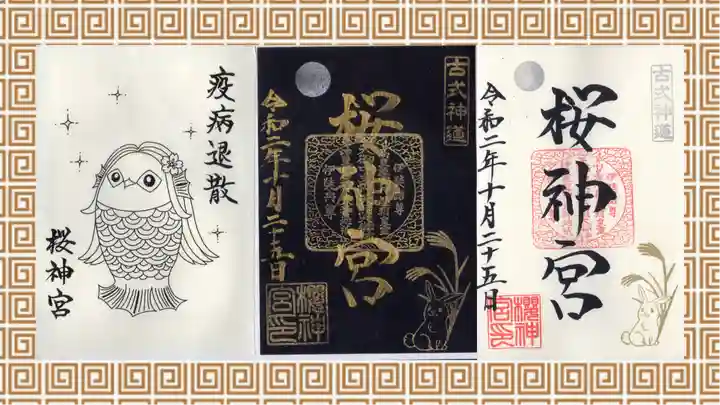 疫病退散
桜神宮
古式神道
桜神宮
令和二年十月二十五日
櫻神
宮印
古式神道
桜神宮
令和二年十月二十五日
櫻神
宮印